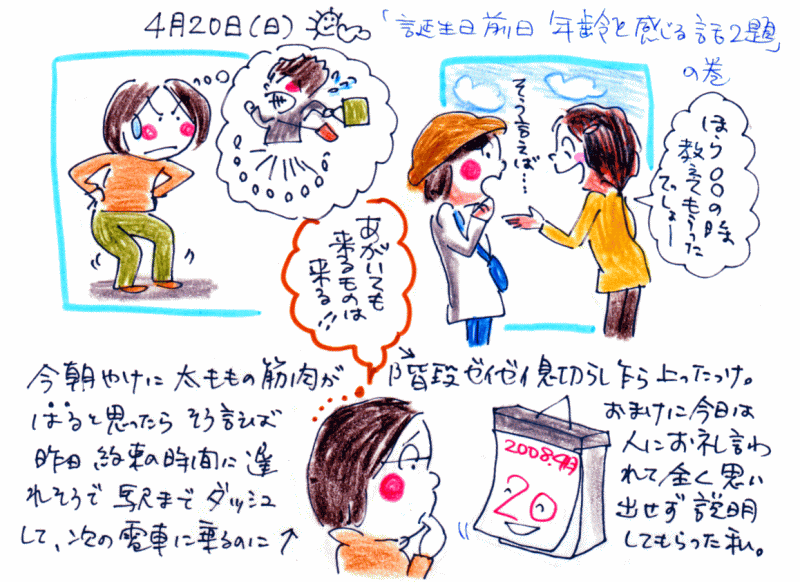 4月20日(日)
「誕生日前日 年齢と感じる話2題」
の巻
そう言えば…
ほら〇〇の時
教えてもらった
でしょー
あがいても
来るものは
来る!!
今朝やけに 太ももの筋肉が
はると思ったら そう言えば
昨日 約束の時間に遅
れそうで 駅まで ダッシュ
して、次の電車に乗るのに↑
階段ゼイゼイ息切らし乍ら上ったっけ。
おまけに今日は
人にお礼言わ
れて全く思い
出せず 説明
してもらった私。
2008.4月
20